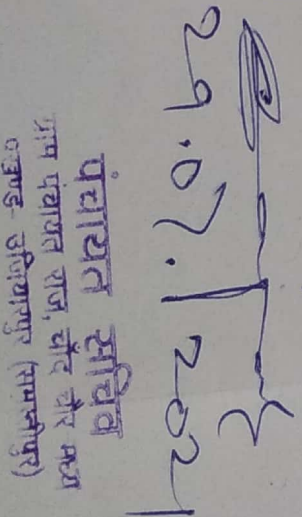 29.07.2021
पंचायत सचिव
ग्राम पंचायत राज, चाँद चौर मध्य
प्रखण्ड- उजियारपुर (समस्तीपुर)